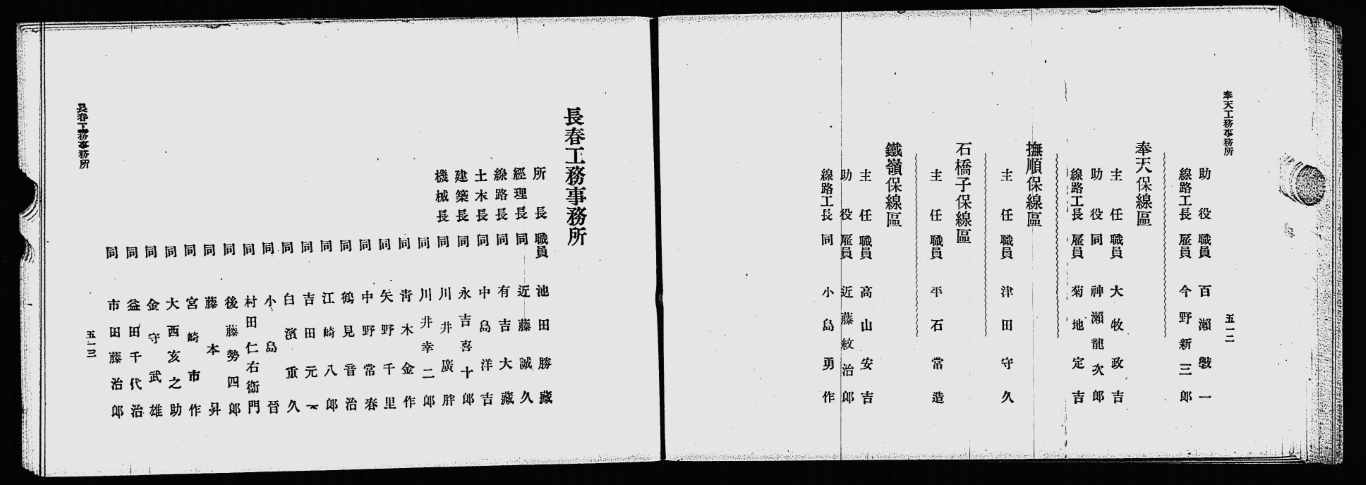 奉天工務事務所
助役 職員 百瀨 一
線路工長 雇員 今野新三郎
奉天保線區
主任 職員 大牧政吉
助役 同 神瀨龍次郎
線路工長 雇員 菊地定吉
撫順保線區
主任 職員 津田守久
石橋子保線區
主任 職員 平石常造
鐵嶺保線區
主任 職員 高山安吉
助役 雇員 近藤紋治郎
線路工長 同 小島勇作
五一二
長春工務事務所
所長 職員 池田勝藏
經理長 同 近藤誠久
線路長 同 有吉大藏
土木長 同 中島洋吉
建築長 同 永吉喜十郎
機械長 同 川井廣胖
同 川井幸二郎
同 靑木金作
同 矢野千里
同 中野常春
同 鶴見音治
同 江崎八郎
同 吉田元一
同 白濱重久
同 小島晉
同 村田仁右衞門
同 後藤勢四郎
同 藤本昇
同 宮崎市作
同 大西亥之助
同 金守武雄
同 益田千代治
同 市田藤治郎
長春工務事務所
五一三